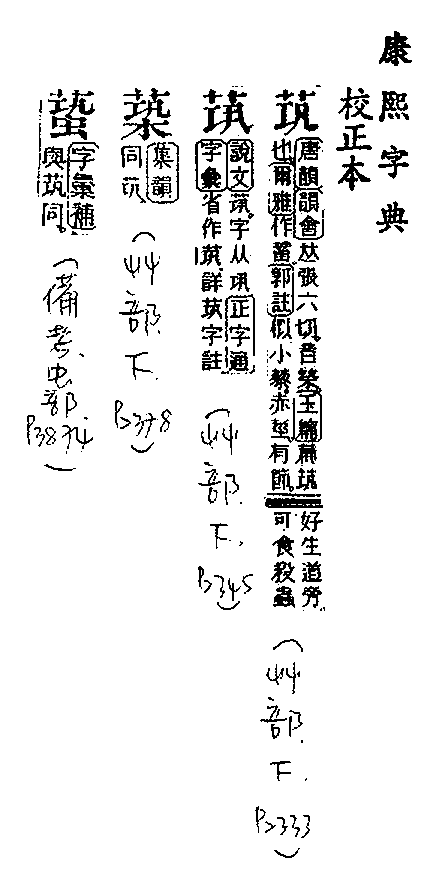 康熙字典
校正本
茿
唐韻韻會𠀤張六切音築玉篇萹茿
也爾雅作蓄郭註似小藜赤莖有節
好生道旁
可食殺蟲
(艸部下.P2333)
說文茿字从巩正字通
字彙省作茿詳茿字註
(艸部下.P2345)
集韻
同茿
(艸部下.P2378)
字彙補
與茿同
(備考虫部P3874)